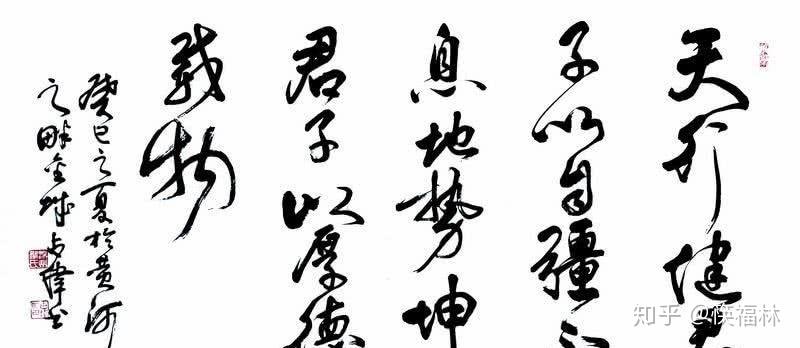 天行健君
子以自疆不
息地势坤
君子以厚德
载物
癸巳之夏於黄河
之畔金城
知乎 @筷福林